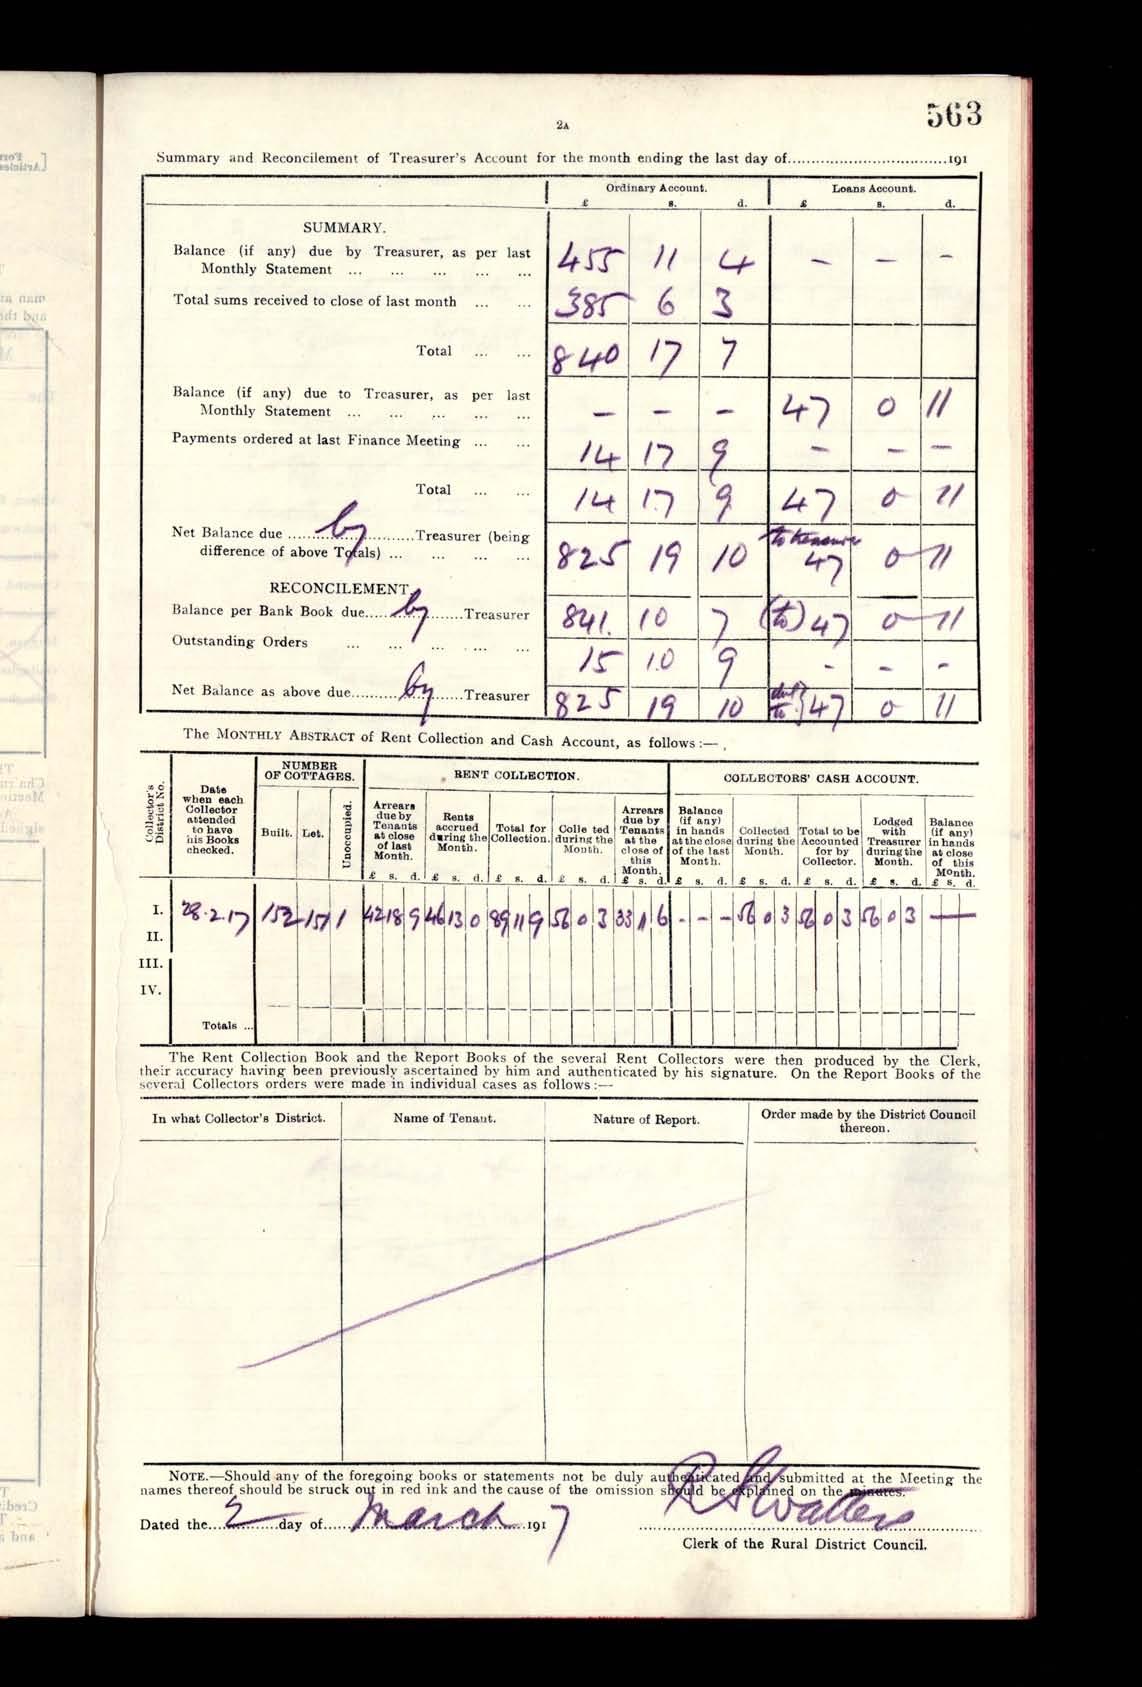 563
2A
Summary and Reconcilement of Treasurer's Account for the month ending the last day of..................................191
Ordinary Account. Loans Account.
£ s. d. £ s. d.
SUMMARY.
Balance (if any) due by Treasurer, as per last
Monthly Statement ... ... ... ... ... 455 11 4 – – –
Total sums received to close of last month ... ... 385 6 3
Total ... ... 840 17 7
Balance (if any) due to Treasurer, as per last
Monthly Statement ... ... ... ... ... – – – 47 0 11
Payments ordered at last Finance Meeting ... ... 14 17 9 – – –
Total ... ... 14 17 9 47 0 11
Net Balance due ......by......Treasurer (being to treasurer
difference of above Totals) ... ... ... ... 825 19 10 47 0 11
RECONCILEMENT
Balance per Bank Book due.....by.......Treasurer 841 10 7 (to) 47 0 11
Outstanding Orders ... ... ... ... ... 15 10 9 - - -
Net Balance as above due..........by......Treasurer 825 19 10 due to } 47 0 11
The MONTHLY ABSTRACT of Rent Collection and Cash Account, as follows:—
Collector's District No.
Date when each Collector attended to have his Books checked.
NUMBER OF COTTAGES.
Built. Let. Unoccupied.
RENT COLLECTION.
Arrears due by Tenants at close of last Month. £ s. d.
Rents accrued during the Month. £ s. d.
Total for Collection. £ s. d.
Colle ted during the Month. £ s. d.
Arrears due by Tenants at the close of this Month. £ s. d.
COLLECTORS' CASH ACCOUNT.
Balance (if any) in hands at the close of the last Month. £ s. d.
Collected during the Month. £ s. d.
Total to be Accounted for by Collector. £ s. d.
Lodged with Treasurer during the Month. £ s. d.
Balance (if any) in hands at close of this Month. £ s. d.
I. 28.2.17 152 151 1 42 18 9 46 13 0 89 11 9 56 0 3 33 11 6 - - - 56 0 3 56 0 3 56 0 3 —
II.
III.
IV.
Totals ...
The Rent Collection Book and the Report Books of the several Rent Collectors were then produced by the Clerk,
their accuracy having been previously ascertained by him and authenticated by his signature. On the Report Books of the
several Collectors orders were made in individual cases as follows:—
In what Collector's District. Name of Tenant. Nature of Report. Order made by the District Council
thereon.
NOTE.—Should any of the foregoing books or statements not be duly authenticated and submitted at the Meeting the
names thereof should be struck out in red ink and the cause of the omission should be explained on the minutes.
Dated the...2...day of.....March...1917
R S Watters
Clerk of the Rural District Council.